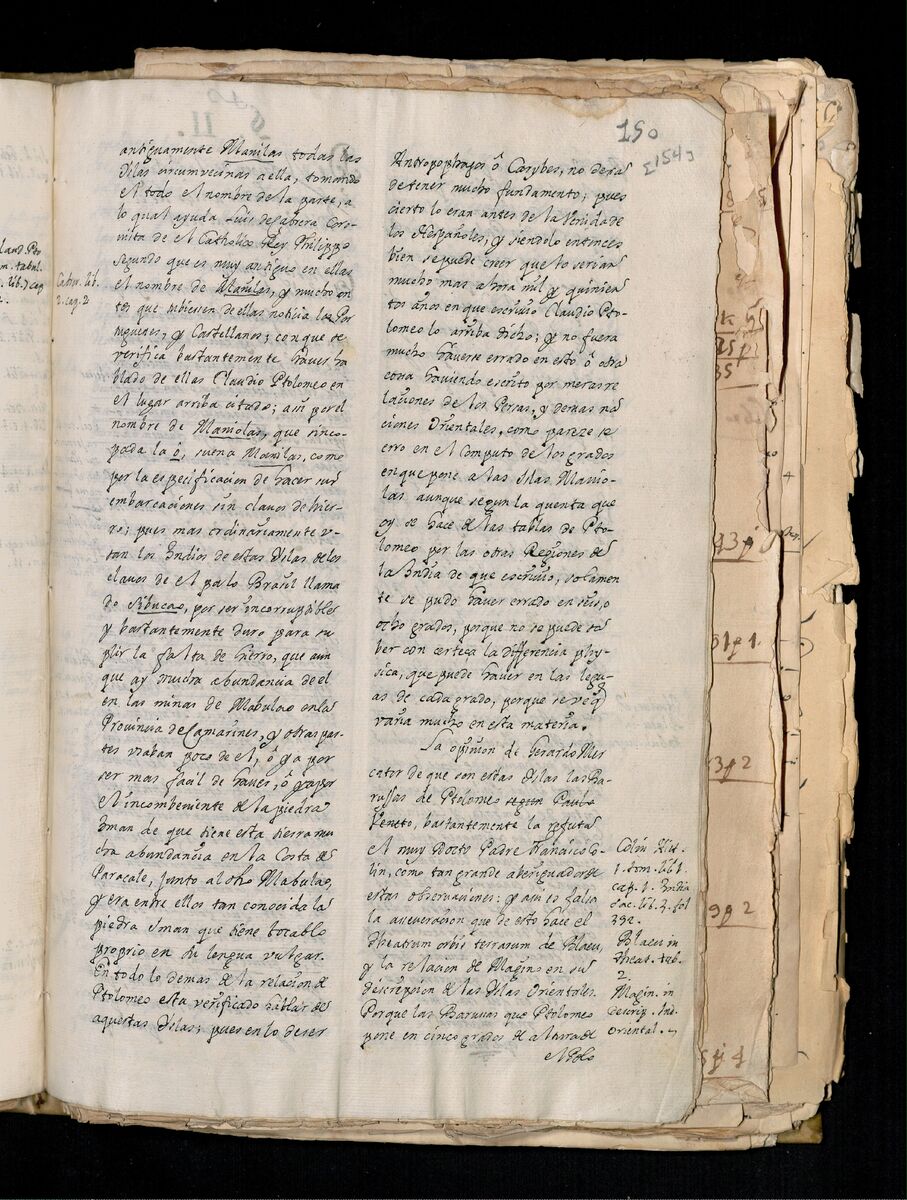 150
[154]
antiguamente Manilas todas las
Yslas circumvecinas a ella, tomando
el todo el nombre de la parte, a
lo qual ayuda Luis de Cabrera Coro-
nista de el Catholico Rey Philippo
segundo que es muy antiguo en ellas
el nombre de Manilas, y mucho an
tes que tubiesen de ellas noticia los Por
tugueses, y Castellanos; con que se
verifica bastantemente haver ha
blado de ellas Claudio Ptolomeo en
el lugar arriba citado; asi por el
nombre de Maniolas, que sinco-
pada la o, suena Manilas, como
por la especificacion de hacer sus
embarcaciones sin clavos de hier-
ro; pues mas ordinariamente v-
san los Indios de estas Yslas de los
clavos de el palo Brasil llama
do Sibucao, por ser incorruptibles
y bastantemente duro para su
plir la falta de hierro, que aun
que ay mucha abundancia de el
en las minas de Mabulao en la
Provincia de Camarines, y otras par-
tes vsaban poco de el, ó ya por
ser mas facil de haver, ó ya por
el incombeniente de la piedra
Yman de que tiene esta tierra mu
cha abundancia en la Costa de
Paracale, junto al dho Mabulao,
y era entre ellos tan conocida la
piedra Yman que tiene bocablo
proprio en su lengua vulgar.
En todo lo demas de la relacion de
Ptolomeo esta verificado hablar de
aquestas Yslas; pues en lo de ser
Cabre. lib.
2. cap. 2
Antropophagos ó Carybes, no dexa
de tener mucho fundamento; pues
cierto lo eran antes de la venida de
los Hespañoles, y siendolo entonces
bien se puede creer que lo serian
mucho mas aora mil y quinien
tos años en que escrivio Claudio Pto-
lomeo lo arriba dicho; y no fuera
mucho haverse errado en esto ó otra
cosa haviendo escrito por meras re
laciones de los Persas, y demas na
ciones Orientales, como pareze se
erro en el Computo de los grados
en que pone a las Yslas Manio-
las aunque segun la quenta que
oy se hace de las tablas de Pto-
lomeo por las otras Regiones de
la India de que escrivio, solamen
te se pudo haver errado en seis, o
ocho grados, porque no se puede sa
ber con certeza la differencia phy-
sica, que puede haver en las leg-
uas de cada grado, porque se ve q
varia mucho en esta materia.
La opinion de Gerardo Mer
cator de que son estas Yslas las Ba-
russas de Ptolomeo segun Paulo
Veneto, bastantemente la refuta
el muy Docto Padre Francisco Co-
lin, como tan grande aberiguador de
estas observaciones: y asi es falsa
la aseveracion que de esto hace el
theatrum orbis terrarum de Blaeu,
y la relacion de Magino en su
descripcion de las Yslas Orientales.
Porque las Barusas que Ptolomeo
pone en cinco grados de altura de
el Polo
Colin His.
1. tom. lib. 1.
cap. 1. India
sac. lib. 3. fol
392.
Blaeu in
theat. tab.
2.
Magin. in
descrip. Ind.
oriental.